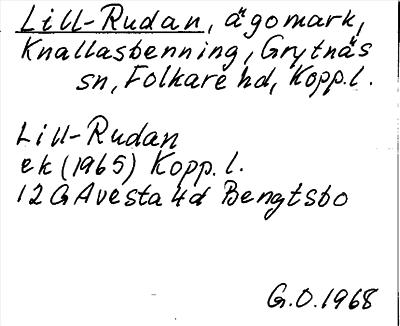 Lill-Rudan, ägomark,
Knallasbenning, Grytnäs
sn, Folkare hd, Kopp. l.
Lill-Rudan
ek (1965) Kopp. l.
12 G Avesta 4d Bengtsbo
G.O. 1968